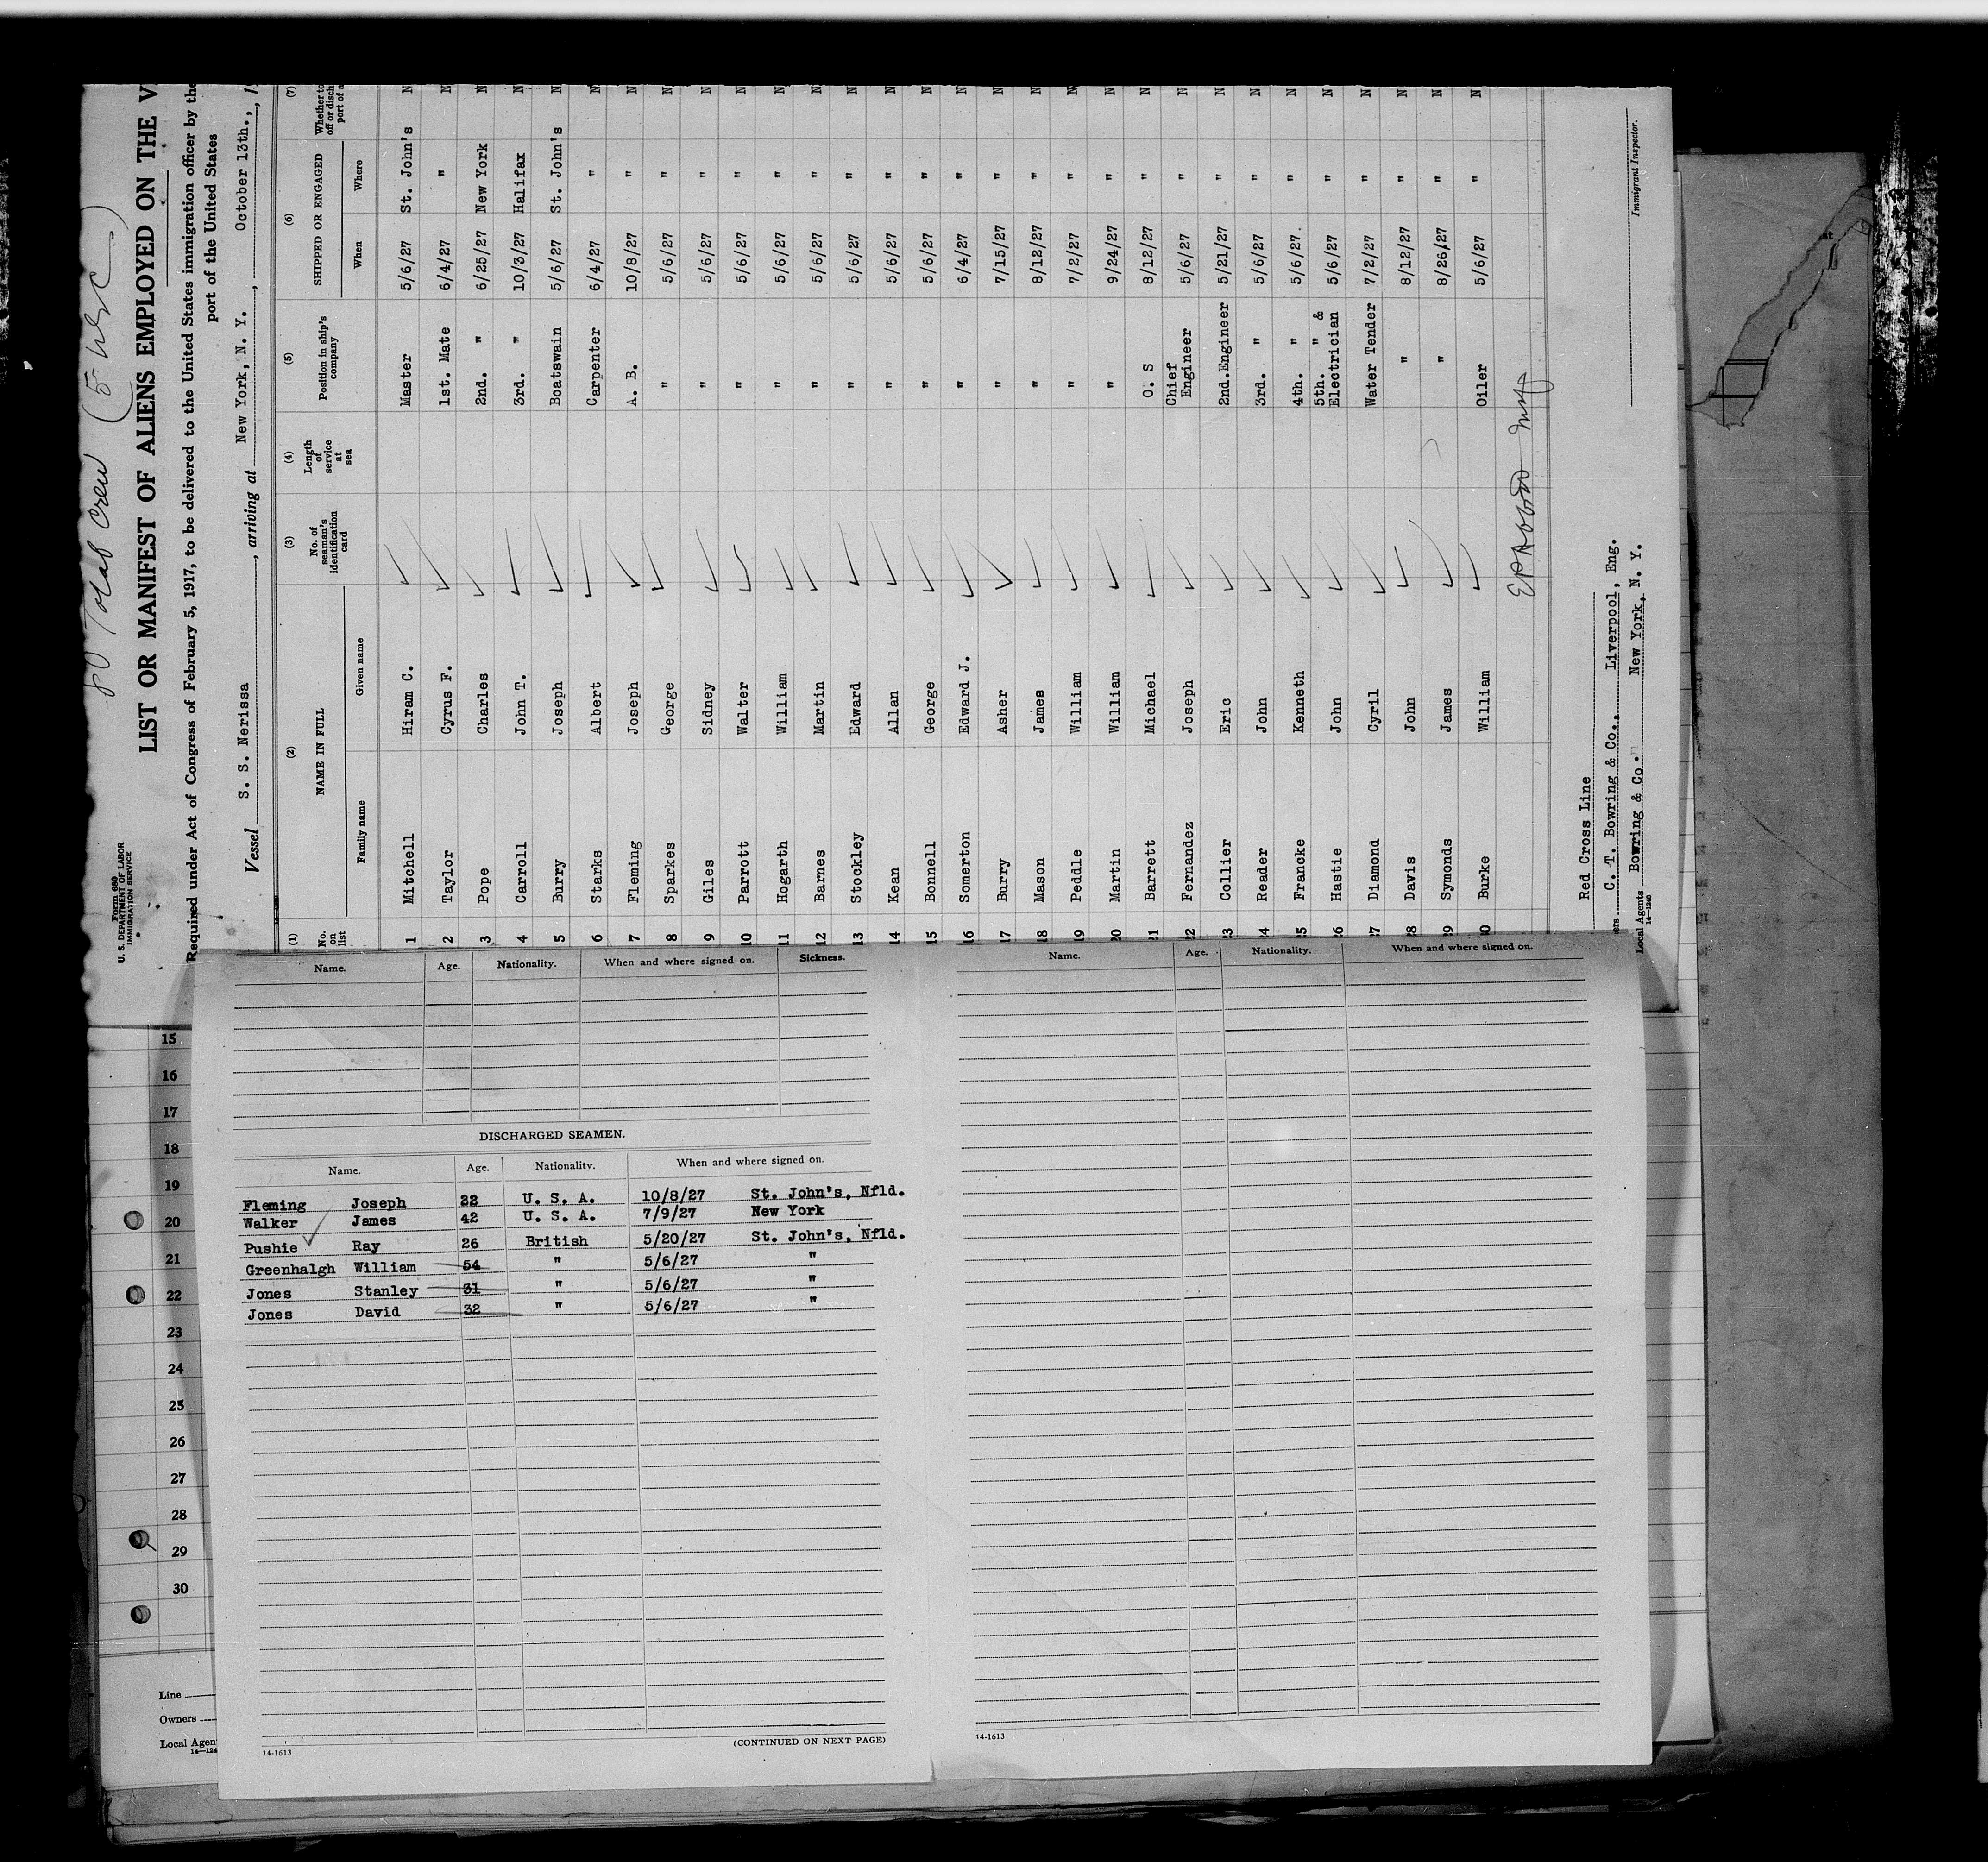 80 Total Crew (5 USC)
Form 680
U. S. DEPARTMENT OF LABOR
IMMIGRATION SERVICE
LIST OR MANIFEST OF ALIENS EMPLOYED ON THE V
Required under Act of Congress of February 5, 1917, to be delivered to the United States immigration officer by the
port of the United States
Vessel S. S. Nerissa, arriving at New York, N. Y., October 13th., 1
(1) (2) (3) (4) (5) (6) (7)
No. on list NAME IN FULL No. of seaman's identification card Length of service at sea Position in ship's company SHIPPED OR ENGAGED Whether to off or disch port of a
Family name Given name When Where
1 Mitchell Hiram C. Master 5/6/27 St. John's N
2 Taylor Cyrus F. 1st. Mate 6/4/27 " N
3 Pope Charles 2nd. " 6/25/27 New York N
4 Carroll John T. 3rd. " 10/3/27 Halifax N
5 Burry Joseph Boatswain 5/6/27 St. John's N
6 Starks Albert Carpenter 6/4/27 " N
7 Fleming Joseph A. B. 10/8/27 " N
8 Sparkes George " 5/6/27 " N
9 Giles Sidney " 5/6/27 " N
10 Parrott Walter " 5/6/27 " N
11 Hogarth William " 5/6/27 " N
12 Barnes Martin " 5/6/27 " N
13 Stockley Edward " 5/6/27 " N
14 Kean Allan " 5/6/27 " N
15 Bonnell George " 5/6/27 " N
16 Somerton Edward J. " 6/4/27 " N
17 Burry Asher " 7/15/27 " N
18 Mason James " 8/12/27 " N
19 Peddle William " 7/2/27 " N
20 Martin William " 9/24/27 " N
21 Barrett Michael O. S 8/12/27 " N
22 Fernandez Joseph Chief Engineer 5/6/27 " N
23 Collier Eric 2nd.Engineer 5/21/27 " N
24 Reader John 3rd. " 5/6/27 " N
25 Francke Kenneth 4th. " 5/6/27. " N
26 Hastie John 5th. " & Electrician 5/6/27 " N
27 Diamond Cyril Water Tender 7/2/27 " N
28 Davis John " 8/12/27 " N
29 Symonds James " 8/26/27 " N
30 Burke William Oiler 5/6/27 " N
Red Cross Line
ers C. T. Bowring & Co., Liverpool, Eng.
Local Agents Bowring & Co. New York, N. Y.
14-1240
Immigrant Inspector.
Name. Age. Nationality. When and where signed on. Sickness.
DISCHARGED SEAMEN.
Name. Age. Nationality. When and where signed on.
Fleming Joseph 22 U. S. A. 10/8/27 St. John's, Nfld.
Walker James 42 U. S. A. 7/9/27 New York
Pushie Ray 26 British 5/20/27 St. John's, Nfld.
Greenhalgh William 54 " 5/6/27 "
Jones Stanley 31 " 5/6/27 "
Jones David 32 " 5/6/27 "
14-1613
(CONTINUED ON NEXT PAGE)
Name. Age. Nationality. When and where signed on.
14-1613
15
16
17
18
19
20
21
22
23
24
25
26
27
28
29
30
Line
Owners
Local Agen
14-124